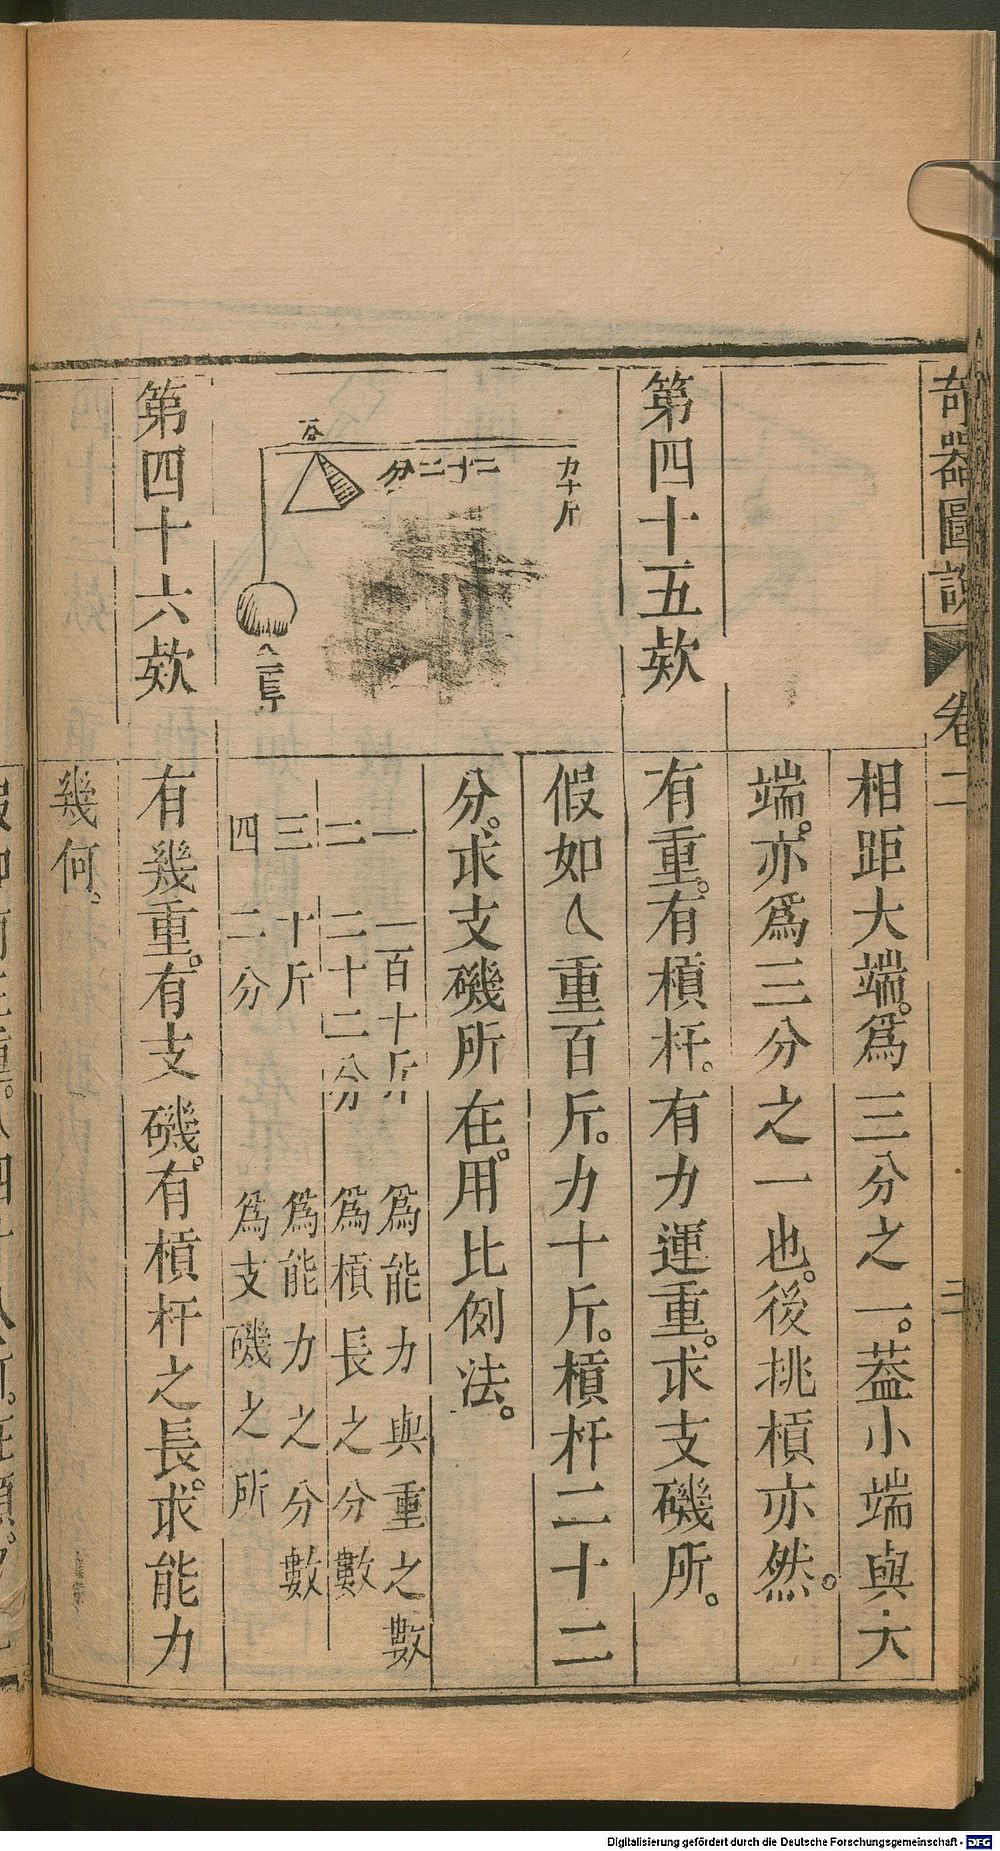 奇器圖說
卷二
三
相距大端。爲三分之一。葢小端與大
端。亦爲三分之一也。後挑槓亦然。
第四十五欵
有重。有槓杆。有力運重。求支磯所。
力十斤
二十二分
假如乀重百斤。力十斤。槓杆二十二
分。求支磯所在。用比例法。
一 一百十斤 爲能力與重之數
二 二十二分 爲槓長之分數
三 十斤 爲能力之分數
四 二分 爲支磯之所
第四十六欵
有幾重。有支磯。有槓杆之長。求能力
幾何。
Digitalisierung gefördert durch die Deutsche Forschungsgemeinschaft - DFG